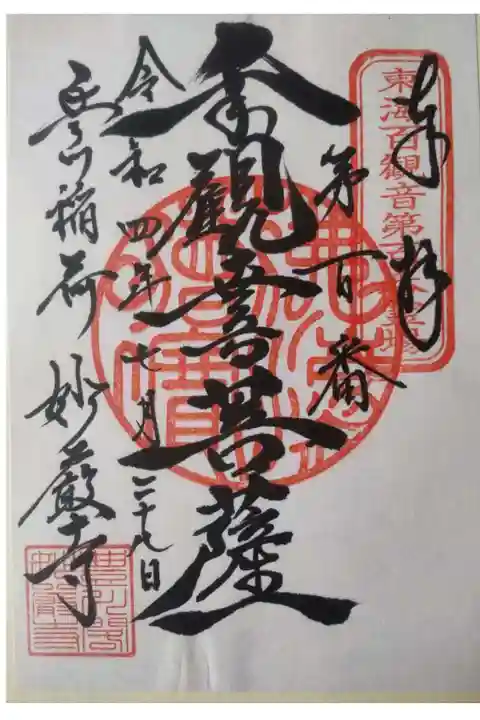 奉拝
東海百觀音第百
第百番
觀音菩薩
令和四年七月二十九日
豊川稲荷 妙嚴寺